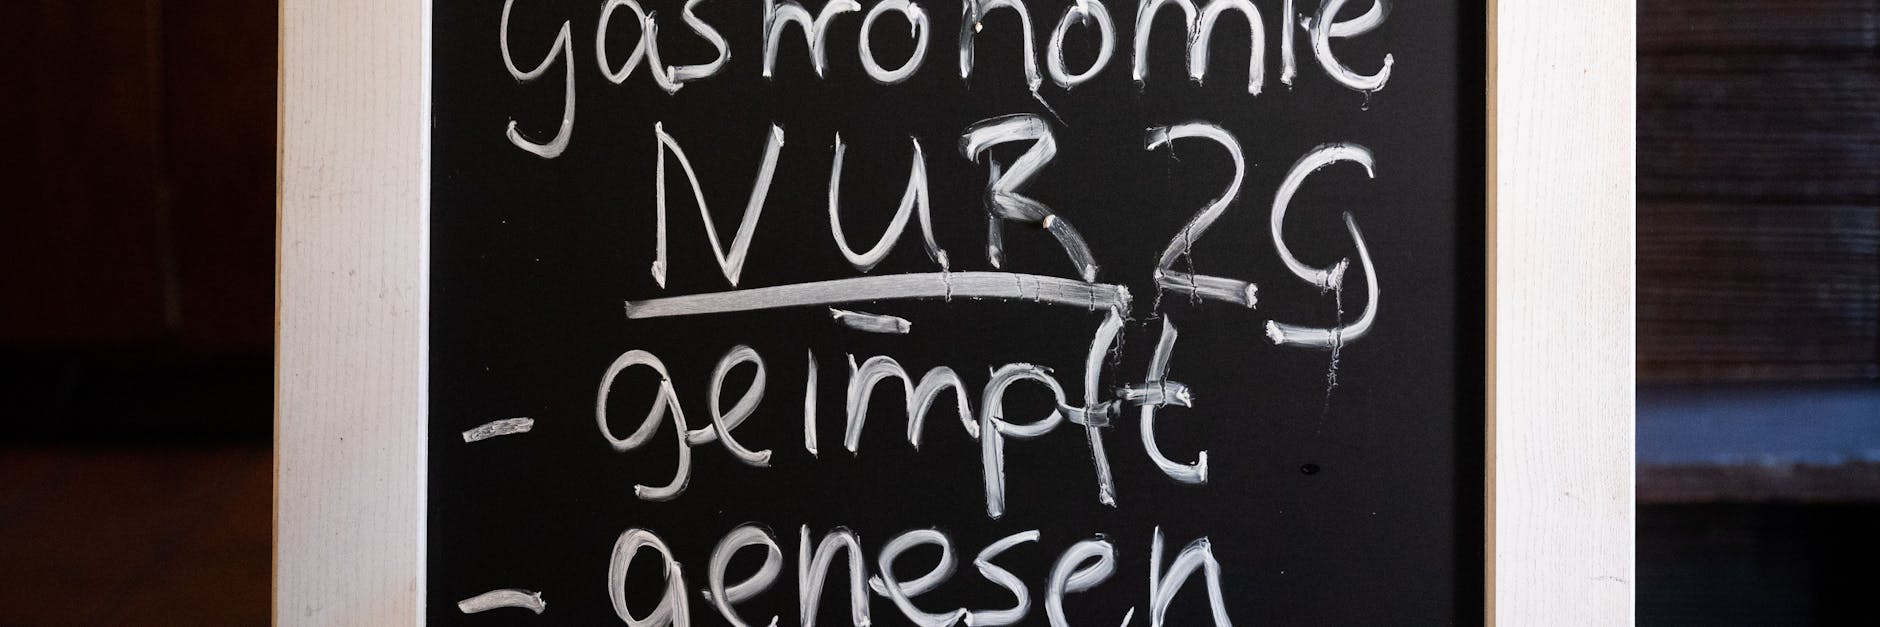 Gastronomie
NUR 2G
- geimpft
- genesen